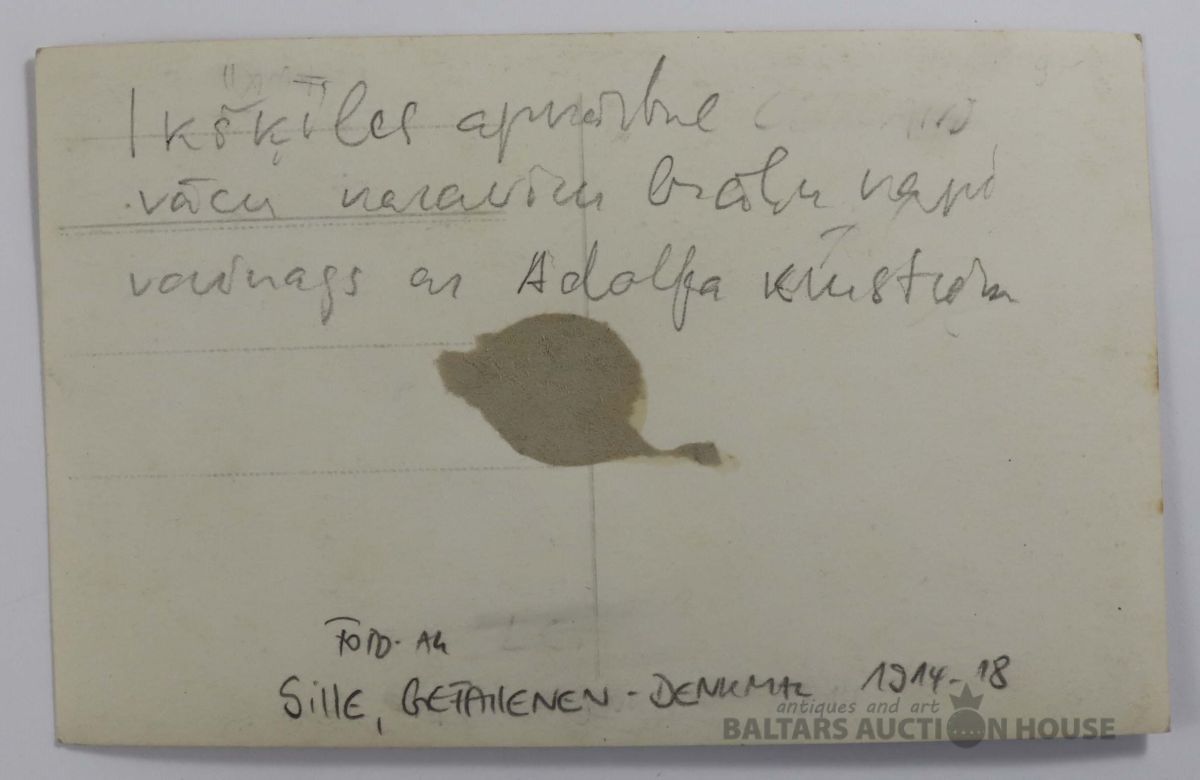 Ikšķīles apkārtne
vācu karavīru brāļu kapi
vainags ar Adolfa
FOTO- AK
Sille, GEFALLENEN - DENKMAL 1914-18
antiques and art
BALTARS AUCTION HOUSE